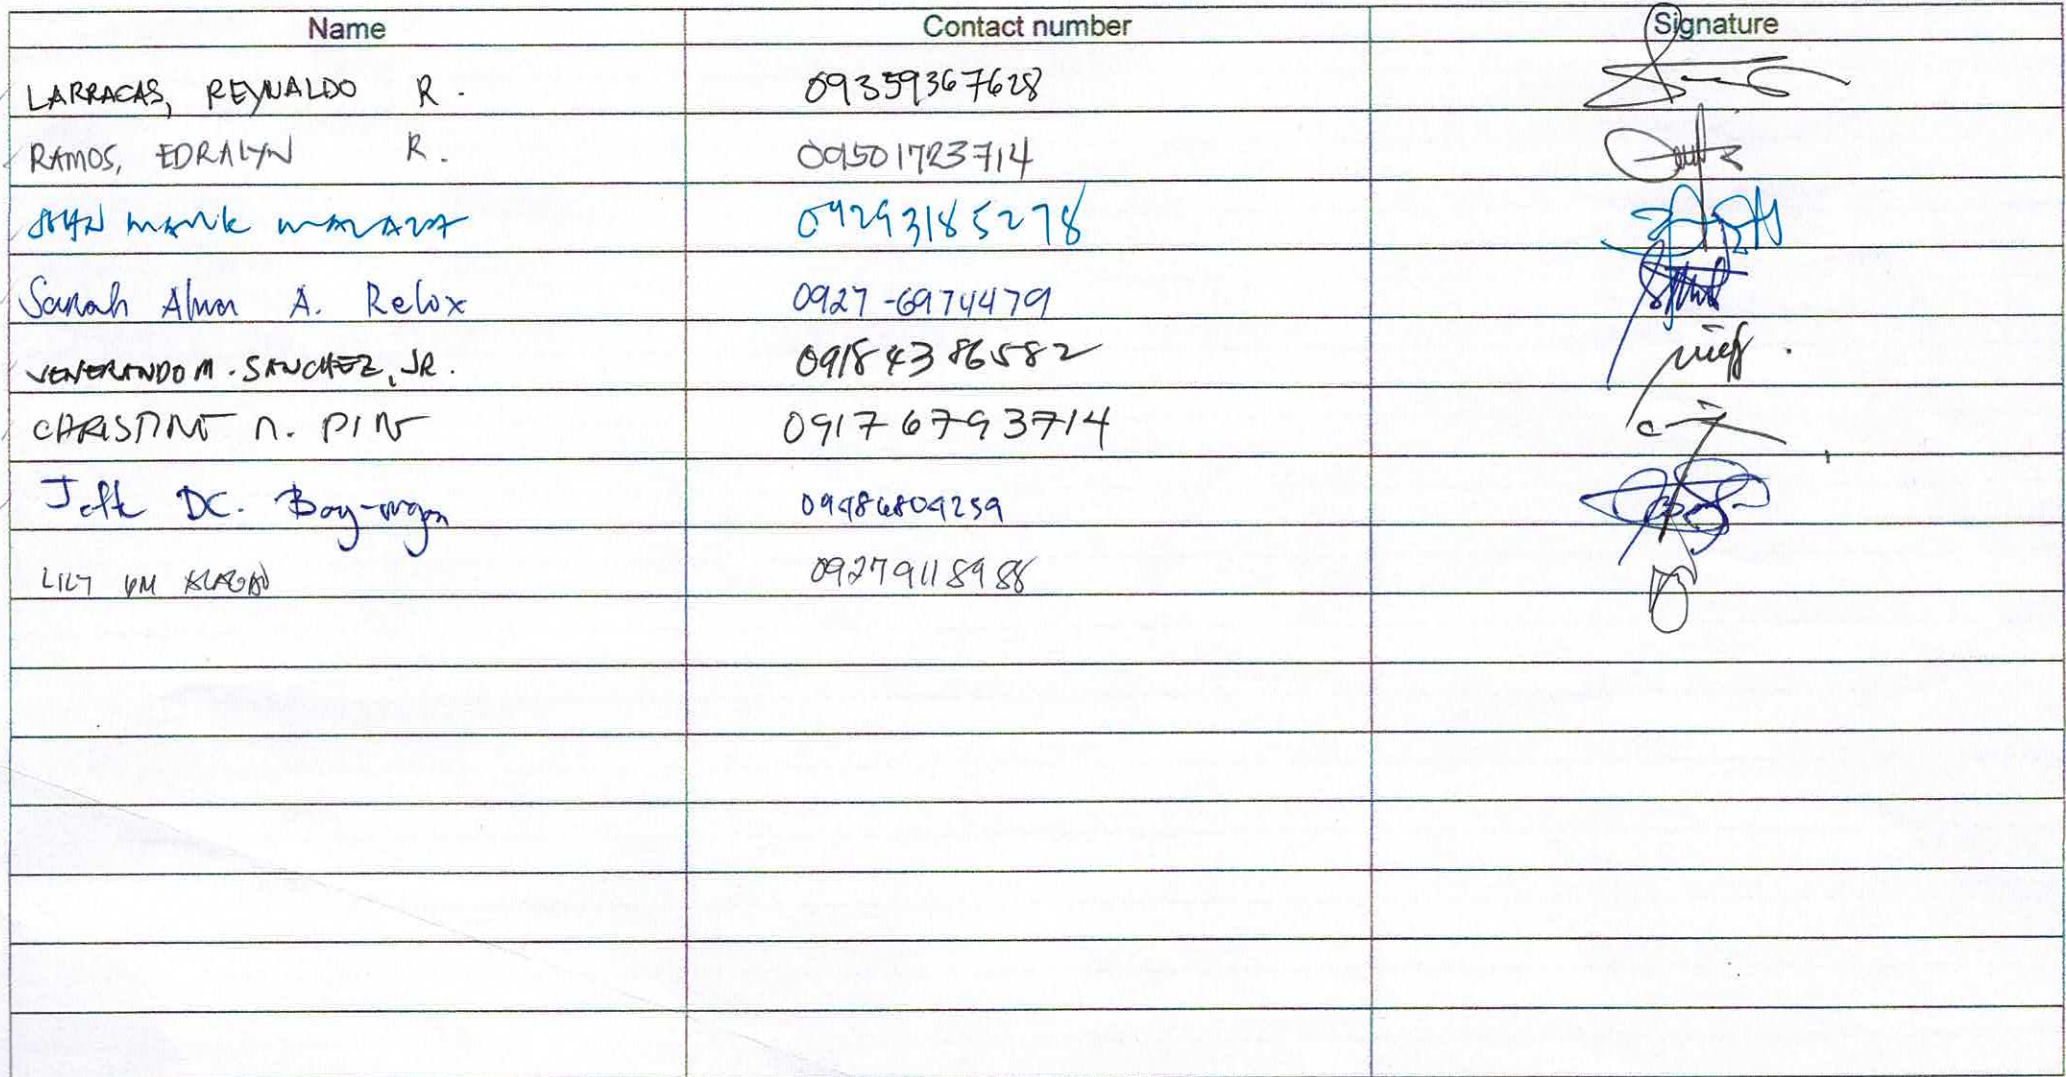 Name Contact number Signature
LARRACAS, REYNALDO R. 09359367628
RAMOS, EDRALYN R. 09501723714
MARK 09293185278
Sarah Alma A. Relox 0927-6974479
VENERANDO M. SANCHEZ, JR. 09184386582
CHRISTINE N. PINE 09176793714
DC. 09486809259
LILY 09279118988